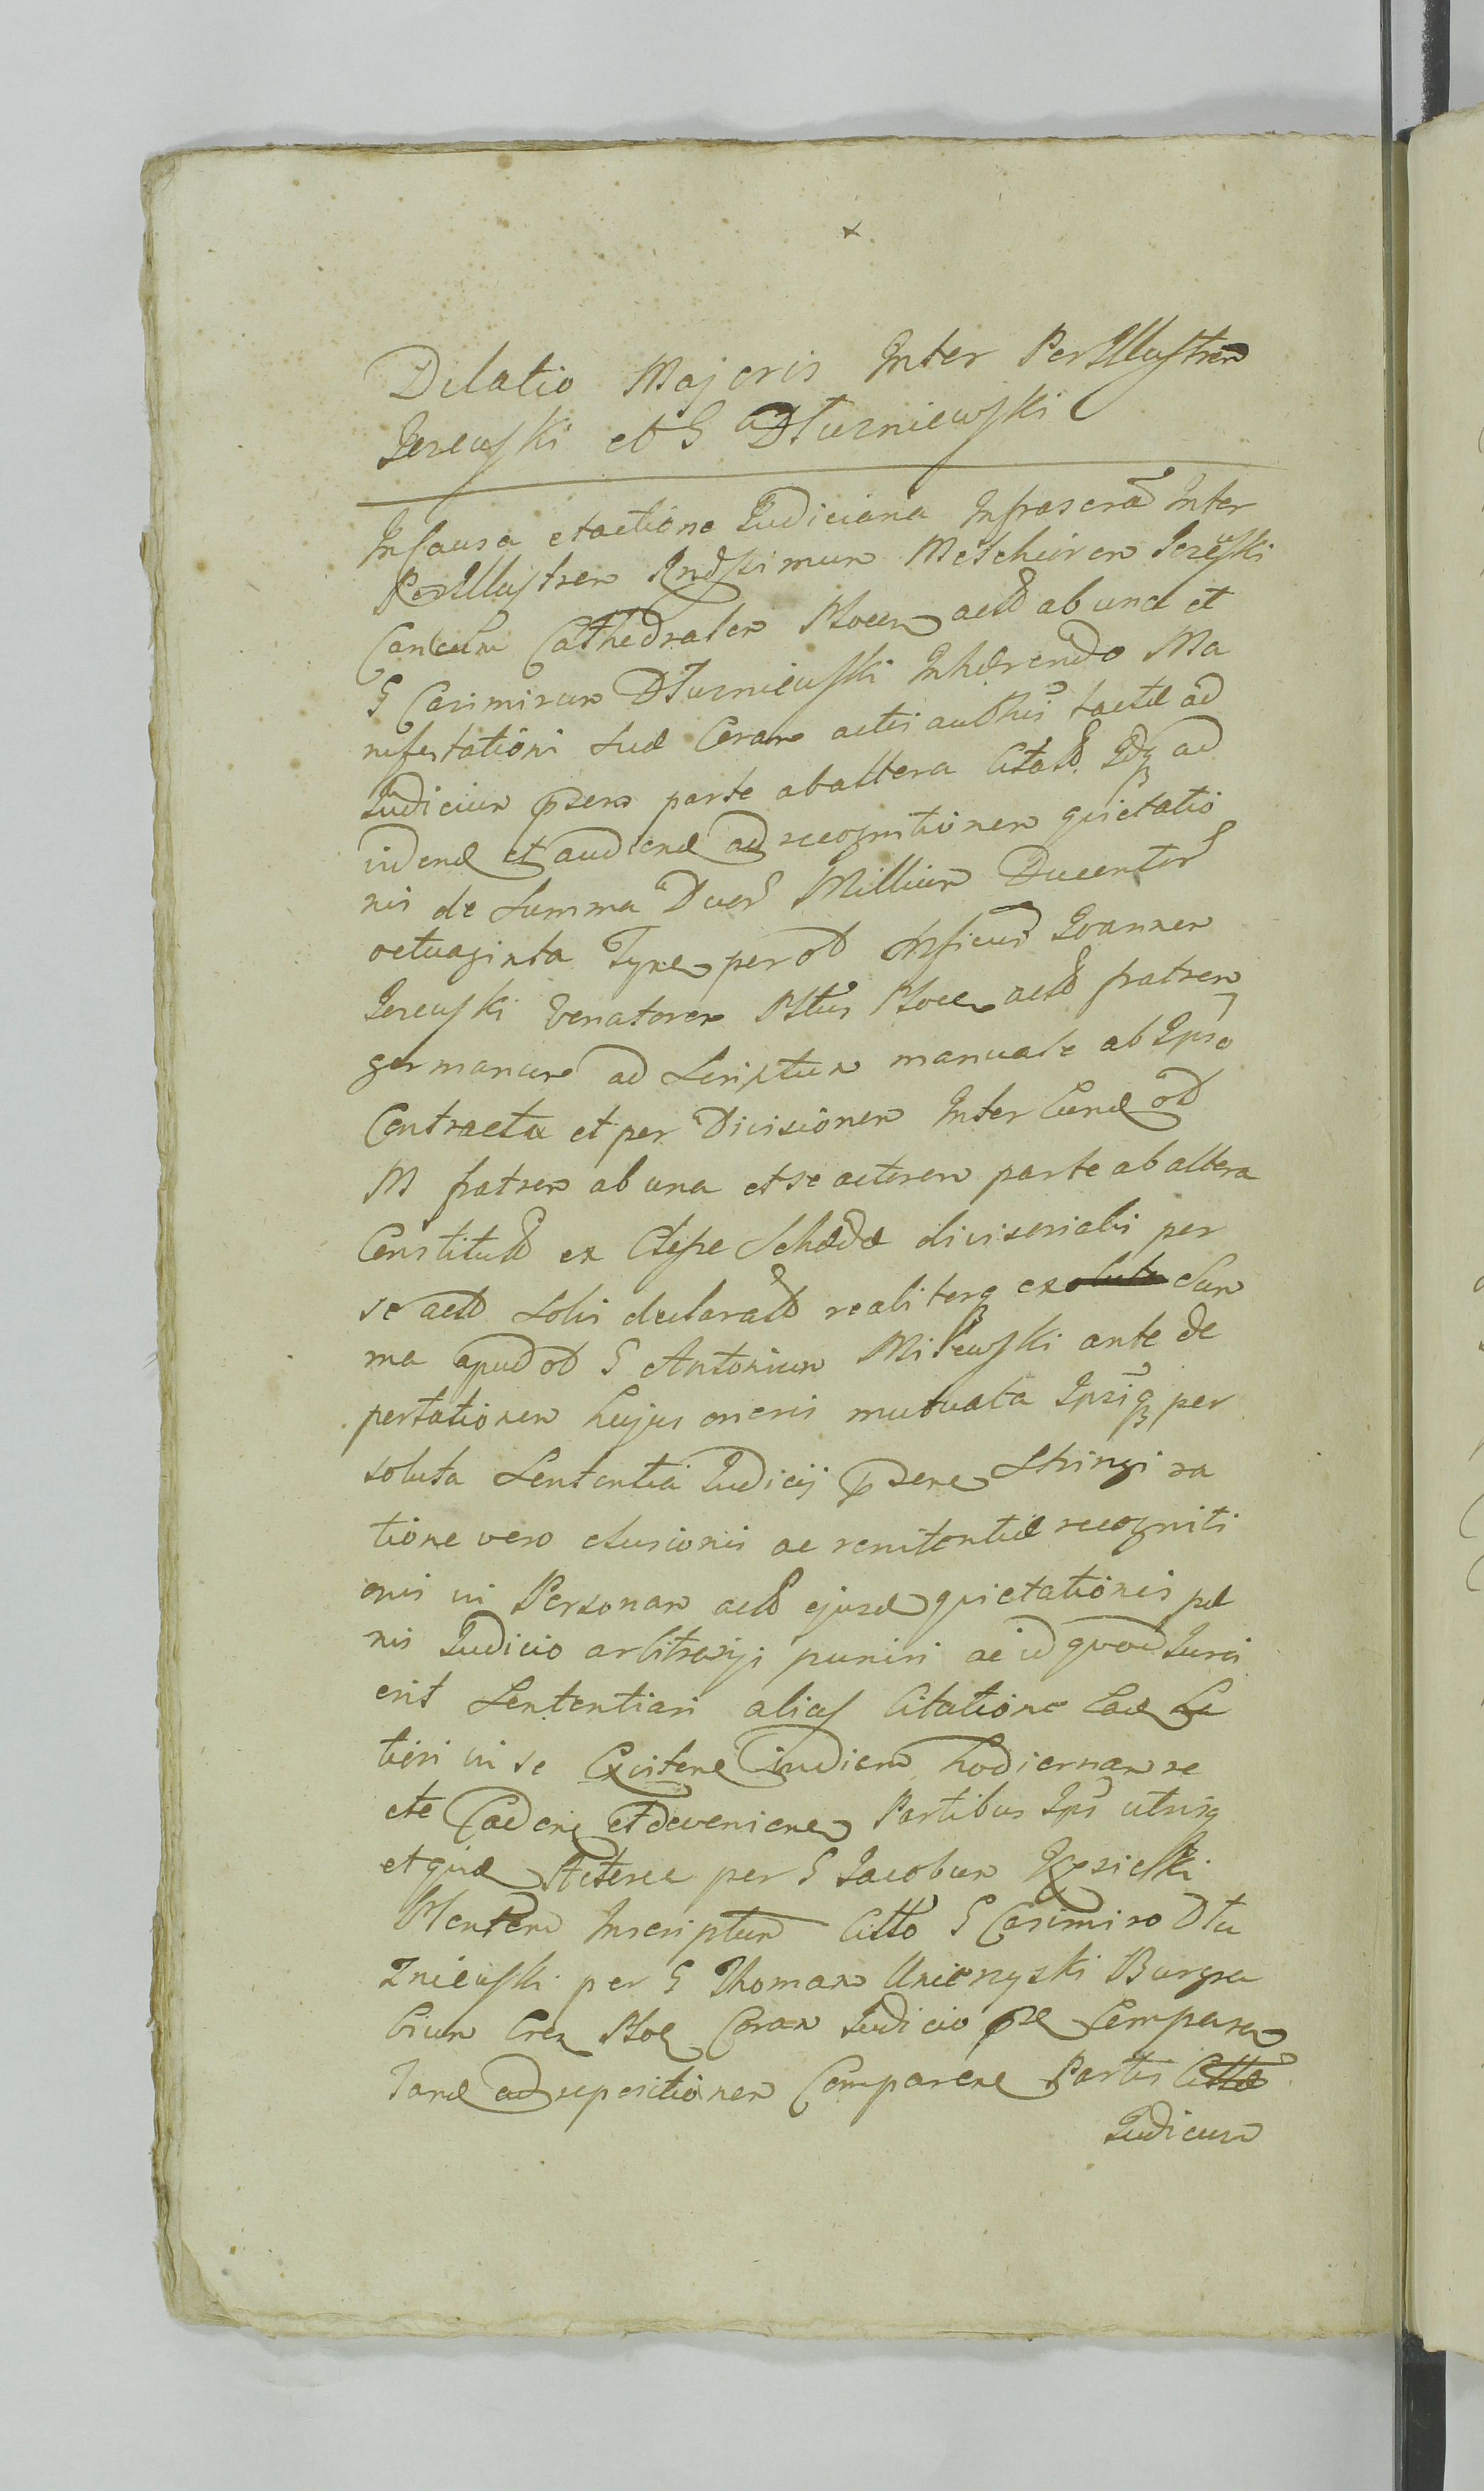 Dilatio Majoris Inter PerIllustrem
Jezewski et G Dłuzniewski
In causa et actione Judiciaria Infrascrã Inter
PerIllustrem Rndssimum Melchiorem Jezewski
Canlem Cathedralem Plocen actō ab una et
G Casimirum Dłuzniewski Inhærendo Ma
nifestationi suæ Coram actis authcis factæ ad
Judicium præsens parte ab altera Citatō Idq ad
vidend et audiend ad recognitionem quietatio
nis de Summa Duor Millium Ducentor
octuaginta Tynf per olt Mficum Joannem
Jezewski Venatorem Pltus Plocen actō fratrem
germanum ad Scriptum manuale ab Ipso
Contracta et per Divisionem Inter Eund olt
M fratrem ab una et se actorem parte ab altera
Constitutō ex Csepe Schedæ divisorialis per
se actō solvi declaratō realiterq Sum
ma apud olt G Antonium Milewski ante de
portationem hujus oneris mutuata Ipsiq per
soluta Sententia Judicij præsen Stringi ra
tione vero elusionis ac renitentiæ recogniti
onis in Personam actō ejusd quietationis pæ
nis Judicio arbitrarijs puniri ac id quod Juris
erit Sententiari alias Citatione Ead La
tiori in se Existen in diem hodiernam re
cte Caden et devenien Partibus Ips utrisq
et quid Actorea per G Jacobum
Plenten Inscriptum Citto G Casimiro Dłu
zniewski per G Thomam Unierzyski Burgra
bium Cren Ploc Coram Judicio præ Comparen
Tand ad repositionem Comparen Partis Cittæ
Judicium